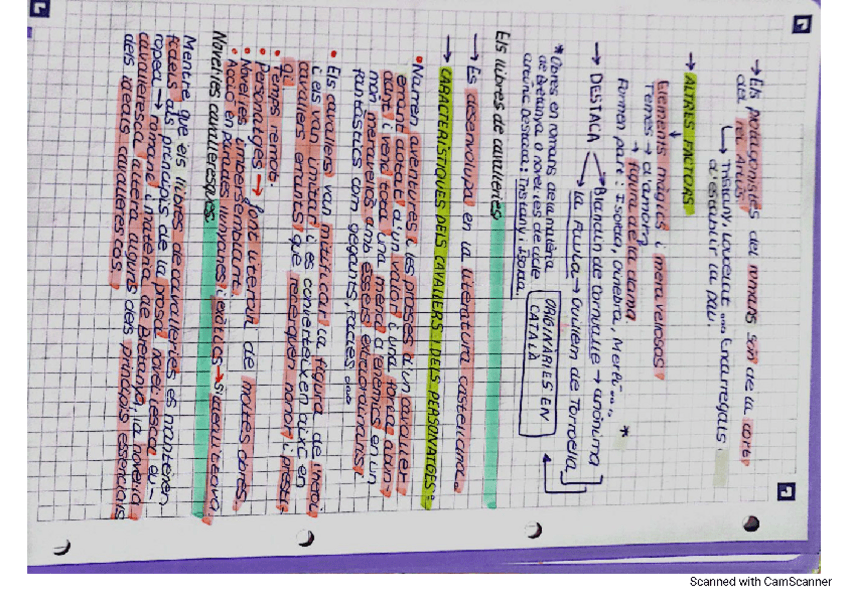 → Els protagonistes del romans són de la cort
del rei Artús
↳ Tristany, Lancelot ... Encarregats
d'establir la pau.
→ ALTRES FACTORS
Elements màgics i meravellosos
Temes → d'amor
→ figura de la dama
Formen part: Isolda, Ginebra, Merlí...
→ DESTACA → Blandín de Cornualla → anònima
→ La Faula → Guillem de Torroella
* Obres en romans de la matèria
de Bretanya o novel·les de cicle
artúric destaca: Tristany i Isolda.
ORIGINÀRIES EN
CATALÀ
Els llibres de cavalleries
→ Es desenvolupa en la literatura castellana.
→ CARACTERÍSTIQUES DELS CAVALLERS I DELS PERSONATGES:
• Narren aventures i les proeses d'un cavaller
errant dotat d'un valor i una força
i venç tota una mena d'enemics en un
món meravellós amb éssers extraordinaris i
fantàstics com gegants, fades ...
• Els cavallers van mitificar la figura de l'heroi
i els van imitar i es converteixen així en
cavallers errants que persegueixen honor i presti-
gi
• Temps remot.
• Personatges → font literària de moltes obres.
• Novel·les inversemblants
• Acció en paratges llunyans i exòtics →
Novel·les cavalleresques:
Mentre que els llibres de cavalleries es mantenen
fidels als principis de la prosa novel·lesca eu-
ropea → romans i matèria de Bretanya, la novel·la
cavalleresca altera alguns dels principis essencials
dels ideals cavallerescos.
Scanned with CamScanner